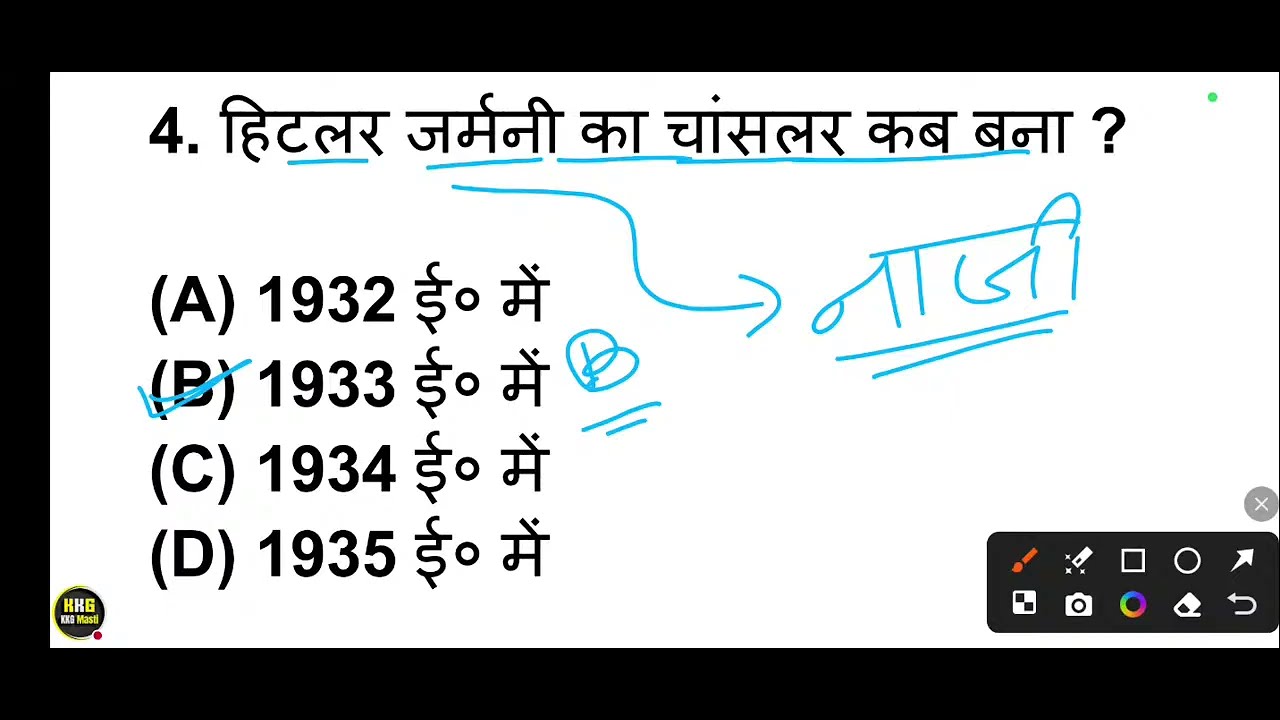 4. हिटलर जर्मनी का चांसलर कब बना ?
नाजी
(A) 1932 ई० में
(B) 1933 ई० में B
(C) 1934 ई० में
(D) 1935 ई० में
KKG
KKG Masti